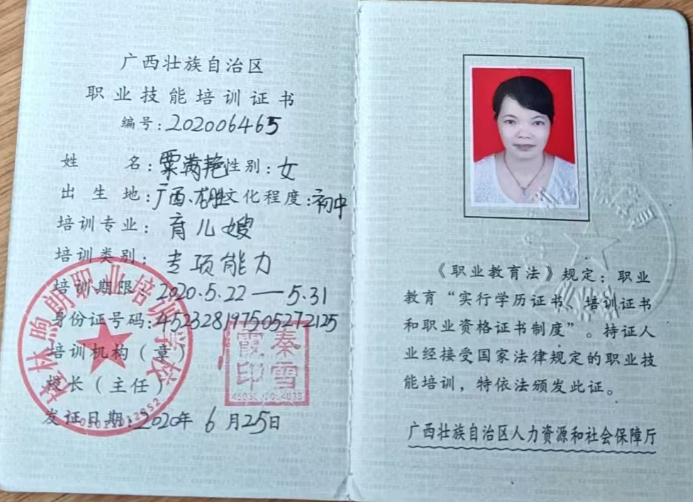 广西壮族自治区
职业技能培训证书
编号:202006465
姓 名:粟满艳 性别:女
出生地:广西、龙胜 文化程度:初中
培训专业:育儿嫂
培训类别:专项能力
培训期限:2020.5.22—5.31
身份证号码:452328197505272125
培训机构(章)
校长(主任)
发证日期:2020年6月25日
桂林煦朗职业培训学校
秦雪霞印
《职业教育法》规定:职业
教育“实行学历证书、培训证书
和职业资格证书制度”。持证人
业经接受国家法律规定的职业技
能培训,特依法颁发此证。
广西壮族自治区人力资源和社会保障厅